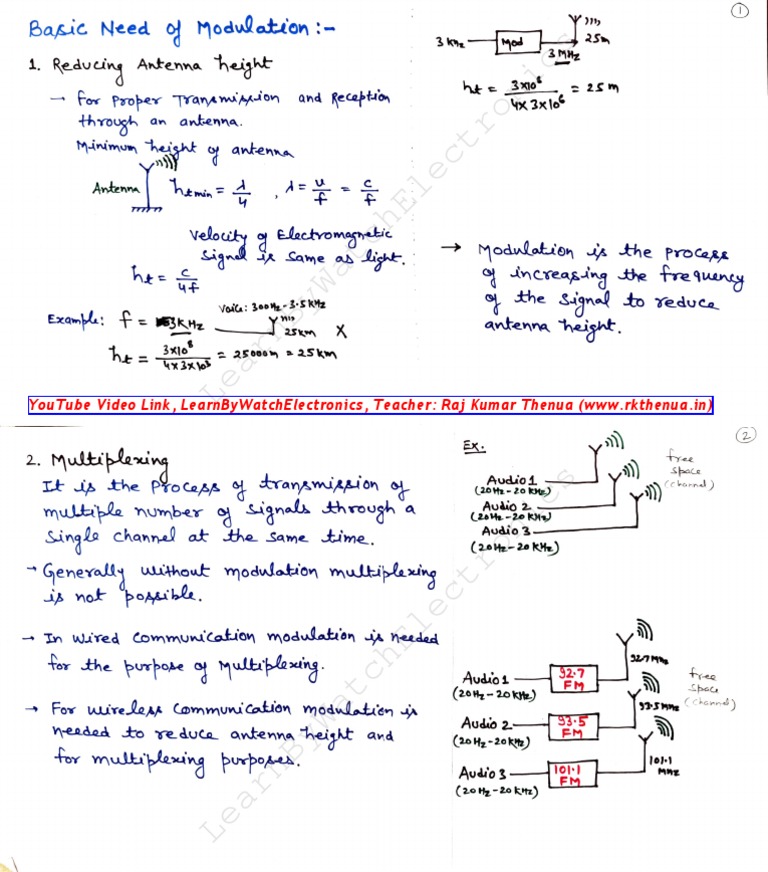 ①
Basic Need of Modulation :-
1. Reducing Antenna height
→ for Proper Transmission and Reception
through an antenna.
Minimum height of antenna
Antenna
htmin = λ/4 , λ = u/f = c/f
Velocity of Electromagnetic
Signal is same as light.
ht = c/4f
Voice: 300Hz-3.5kHz
Example: f = 3KHz
25km X
ht = 3x10⁸/4x3x10³ = 25000m = 25km
3 kHz
Mod
25m
3 MHz
ht = 3x10⁸/4x3x10⁶ = 25m
→ Modulation is the process
of increasing the frequency
of the signal to reduce
antenna height.
LearnByWatchElectronics
YouTube Video Link, LearnByWatchElectronics, Teacher: Raj Kumar Thenua (www.rkthenua.in)
②
2. Multiplexing
It is the process of transmission of
multiple number of signals through a
single channel at the same time.
→ Generally without modulation multiplexing
is not possible.
→ In wired communication modulation is needed
for the purpose of Multiplexing.
→ For wireless communication modulation is
needed to reduce antenna height and
for multiplexing purposes.
Ex.
free
space
(channel)
Audio 1
(20Hz-20kHz)
Audio 2
(20Hz-20kHz)
Audio 3
(20Hz-20kHz)
Audio 1
(20Hz-20kHz)
92.7
FM
92.7 MHz
free
space
(channel)
Audio 2
(20Hz-20kHz)
93.5
FM
93.5 MHz
Audio 3
(20Hz-20kHz)
101.1
FM
101.1
MHz
LearnByWatchElectronics